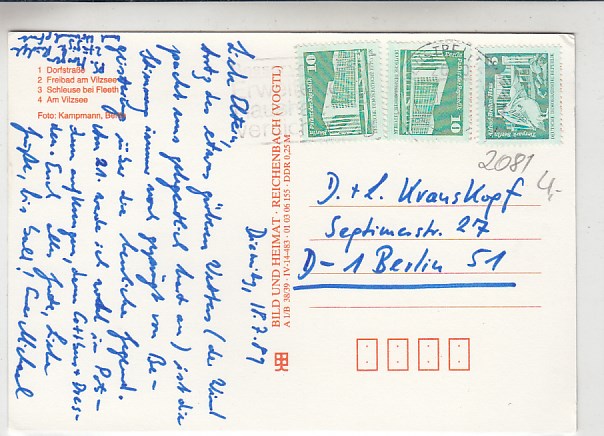 1 Dorfstraße
2 Freibad am Vilzsee
3 Schleuse bei Fleeth
4 Am Vilzsee
Foto: Kampmann, Berlin
BILD UND HEIMAT · REICHENBACH (VOGTL)
A 1/B 38/39 · IV-14-483 · 01 63 96 155 · DDR 0,25 M
Diemitz, 18.7.89
Liebe Alten,
trotz des etwas kühleren Wetters (der Wind
packt uns gelegentlich hart an) ist die
Stimmung immer noch geprägt von Be-
geisterung über die herrliche Gegend.
Am 21. werde ich wohl in Pots-
dam anklingen, dann Cottbus + Dres-
den. Euch alles Gute, Liebe
Grüße, bis bald! Euer Michael
10
10
5
2081
4,-
D. + L. Krauskopf
Septimerstr. 27
D-1 Berlin 51